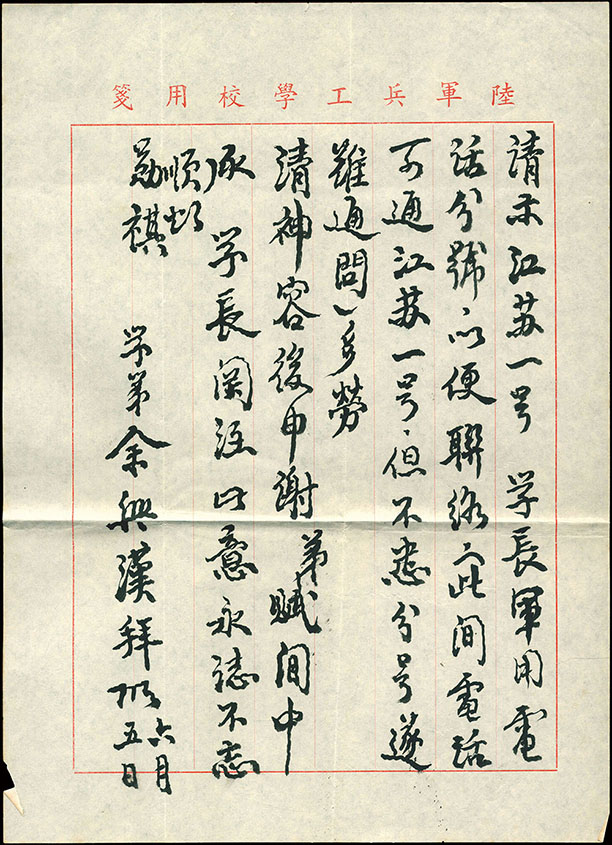 陸軍兵工學校用箋
請示江苏一号 学長軍用電
話分號以便聯络此间電話
可通江苏一号但不悉分号遂
難通問多勞
清神容後申謝弟賦间中
承 学長関注此意永誌不忘
順頌
勛祺
学弟余興漢拜啟
六月
五日